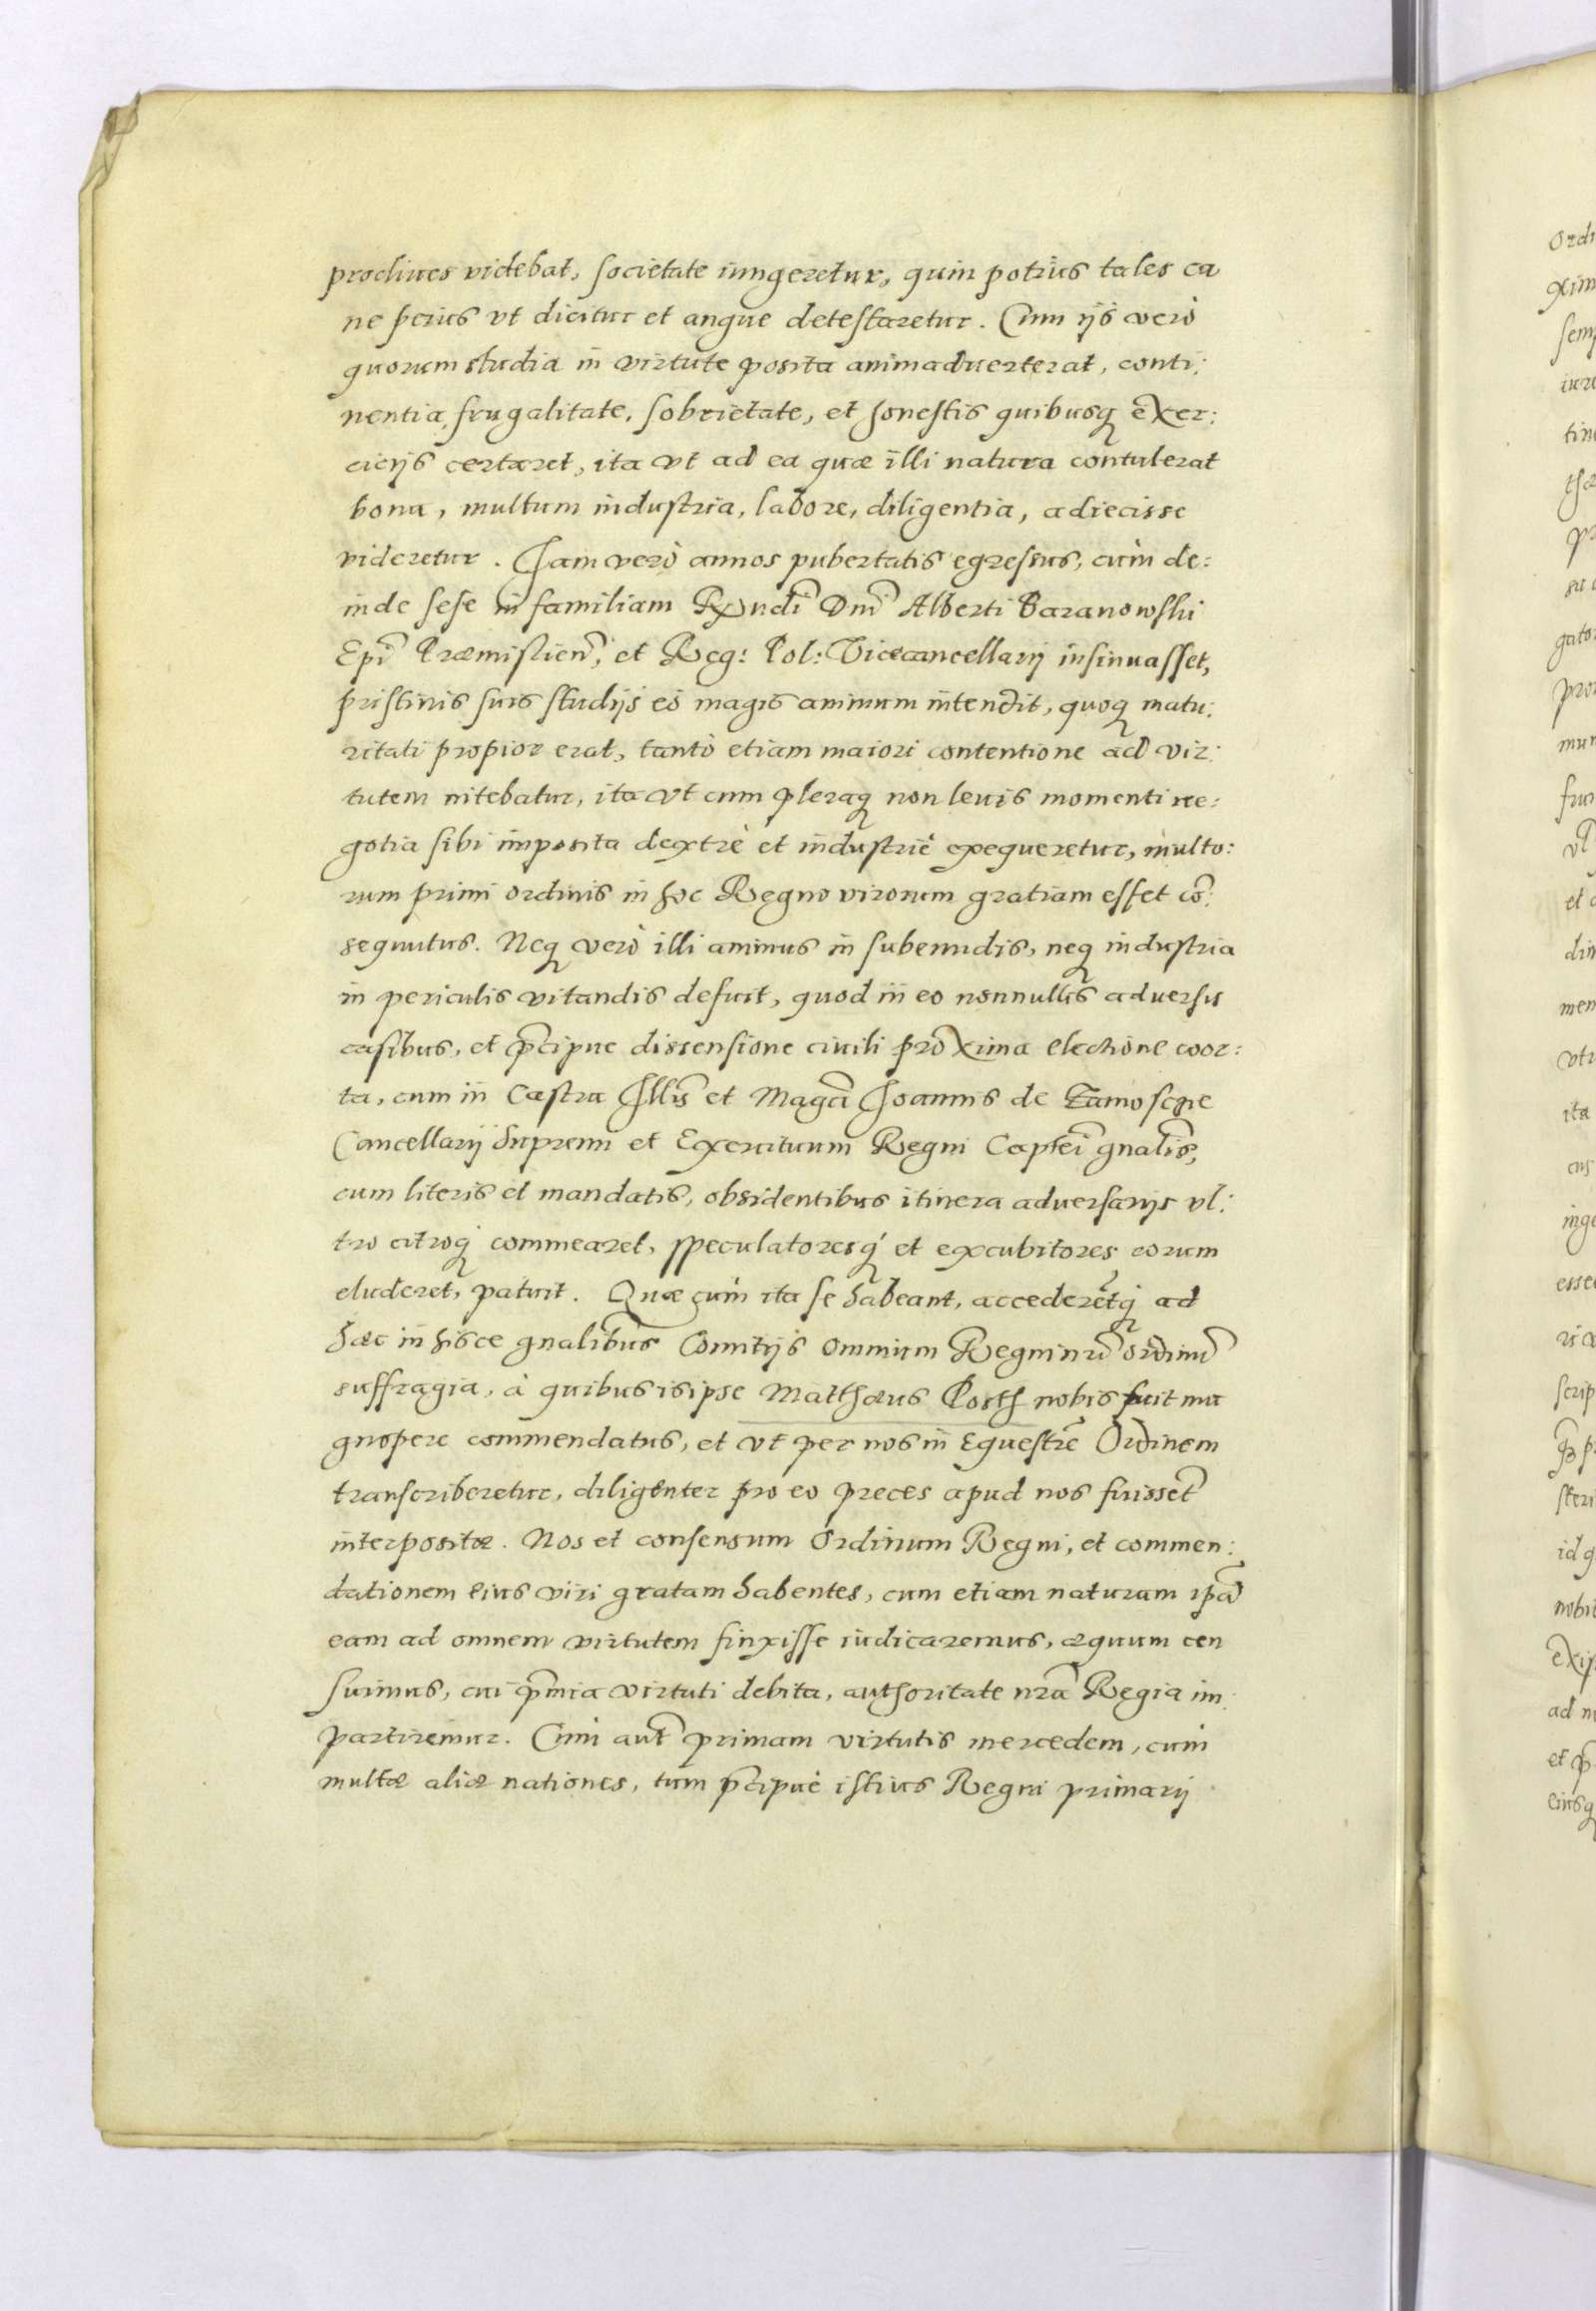 procliues videbat, societate iungeretur, quin potius tales ca
ne peius vt dicitur et angue detestaretur. Cum ijs verò
quorum studia in virtute posita animaduerterat, conti:
nentia, frugalitate, sobrietate, et honestis quibusq exer:
cicijs certaret, ita vt ad ea quæ illi natura contulerat
bona, multum industria, labore, diligentia, adiecisse
videretur. Iam verò annos pubertatis egressus, cùm de:
inde sese in familiam Rndi Dni Alberti Baranowski
Epi Præmislien, et Reg: Pol: Vicecancellarij insinuasset,
pristinis suis studijs eò magis animum intendit, quoq matu:
ritati propior erat, tantò etiam maiori contentione ad vir:
tutem nitebatur, ita vt cum pleraq non leuis momenti ne:
gotia sibi imposita dextrè et industriè exequeretur, multo:
rum primi ordinis in hoc Regno virorum gratiam esset cõ:
sequutus. Neq verò illi animus in subeundis, neq industria
in periculis vitandis defuit, quod in eo nonnullis aduersis
casibus, et pcipue dissensione ciuili proxima electione coor:
ta, cum in Castra Illis et Magci Ioannis de Zamoscie
Cancellarij Supremi et Exercituum Regni Captei gnalis,
cum literis et mandatis, obsidentibus itinera aduersarijs vl:
tro citroq commearet, speculatoresq et excubitores eorum
eluderet, patuit. Quæ cùm ita se habeant, accederetq ad
hæc in hisce gnalibus Comitijs omnium Regni nri ordinũ
suffragia, à quibus is ipse Matthæus Posth nobis fuit ma
gnopere commendatus, et vt per nos in Equestrẽ Ordinem
transcriberetur, diligenter pro eo preces apud nos fuissent
interpositæ. Nos et consensum Ordinum Regni, et commen:
dationem eius viri gratam habentes, cum etiam naturam ipã
eam ad omnem virtutem finxisse iudicaremus, æquum cen
suimus, cui pmia virtuti debita, authoritate nrã Regia im:
partiremur. Cùm aut primam virtutis mercedem, cùm
multæ aliæ nationes, tum pcipuè istius Regni primarij